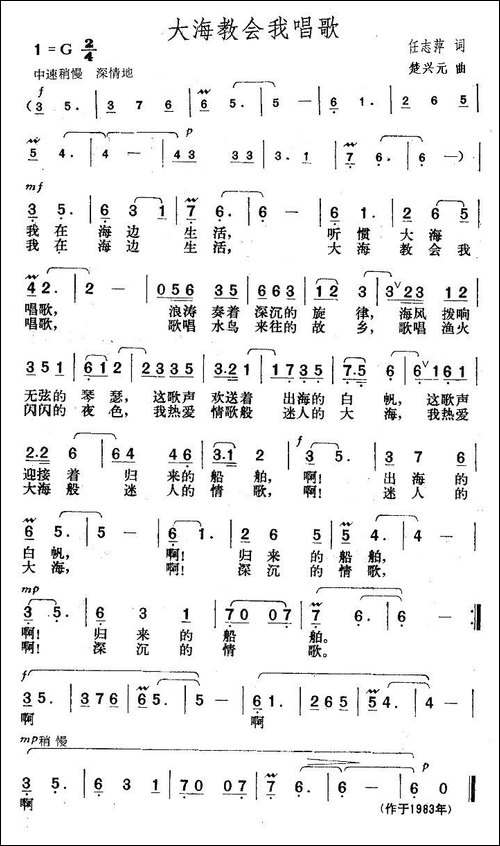 大海教会我唱歌
1=G 2/4
任志萍 词
中速稍慢 深情地
楚兴元 曲
f
(3 5. | 3 7 6 | 6 5. | 5 — | 6 1. | 2 6 5 |
p
5 4. | 4 — | 43 33 | 3.1 | 7 6. | 6 —) |
mf
3 5. | 6 3 1 | 7 6. | 6 — | 6 1. | 2 6 5 |
我在 海边 生活, 听惯 大海
我在 海边 生活, 大海 教会我
42. | 2 — | 0 5 6 35 | 663 | 1 2. | 3 23 12 |
唱歌, 浪涛 奏着 深沉的 旋 律, 海风 拨响
唱歌, 歌唱 水鸟 来往的 故 乡, 歌唱 渔火
351 | 612 | 2335 | 3521 | 1735 | 7.5 6 | 6 161 |
无弦的 琴瑟, 这歌声 欢送着 出海的 白 帆, 这歌声
闪闪的 夜色, 我热爱 情歌般 迷人的 大 海, 我热爱
f
2.2 6 | 64 46 | 3.1 2 | 3 5. | 3 7 6 |
迎接着 归 来的 船 舶, 啊! 出海的
大海般 迷 人的 情 歌, 啊! 迷人的
6 5. | 5 — | 6 1. | 2 6 5 | 5 4. | 4 — |
白帆, 啊! 归来的 船舶,
大海, 啊! 深沉的 情歌,
mp
3 5. | 6 3 1 | 70 07 | 7 6. | 6 — :||
啊! 归来的 船 舶。
啊! 深沉的 情 歌。
f
35. | 376 | 65. | 5 — | 61. | 265 | 54. | 4 — |
啊 啊
mp稍慢
p
3 5. | 6 3 1 | 70 07 | 7 6. | 6 — | 6 0 ||
啊
(作于1983年)